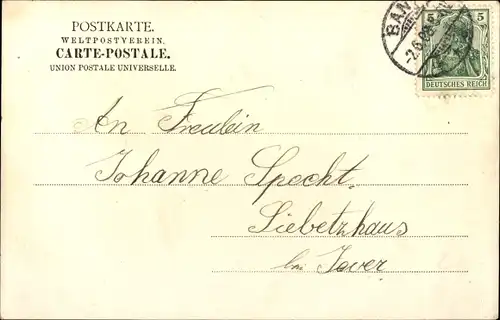 POSTKARTE.
WELTPOSTVEREIN.
CARTE-POSTALE.
UNION POSTALE UNIVERSELLE.
5 5
DEUTSCHES REICH
An Freulein
Johanne Specht.
Siebetzhaus
bei Jever